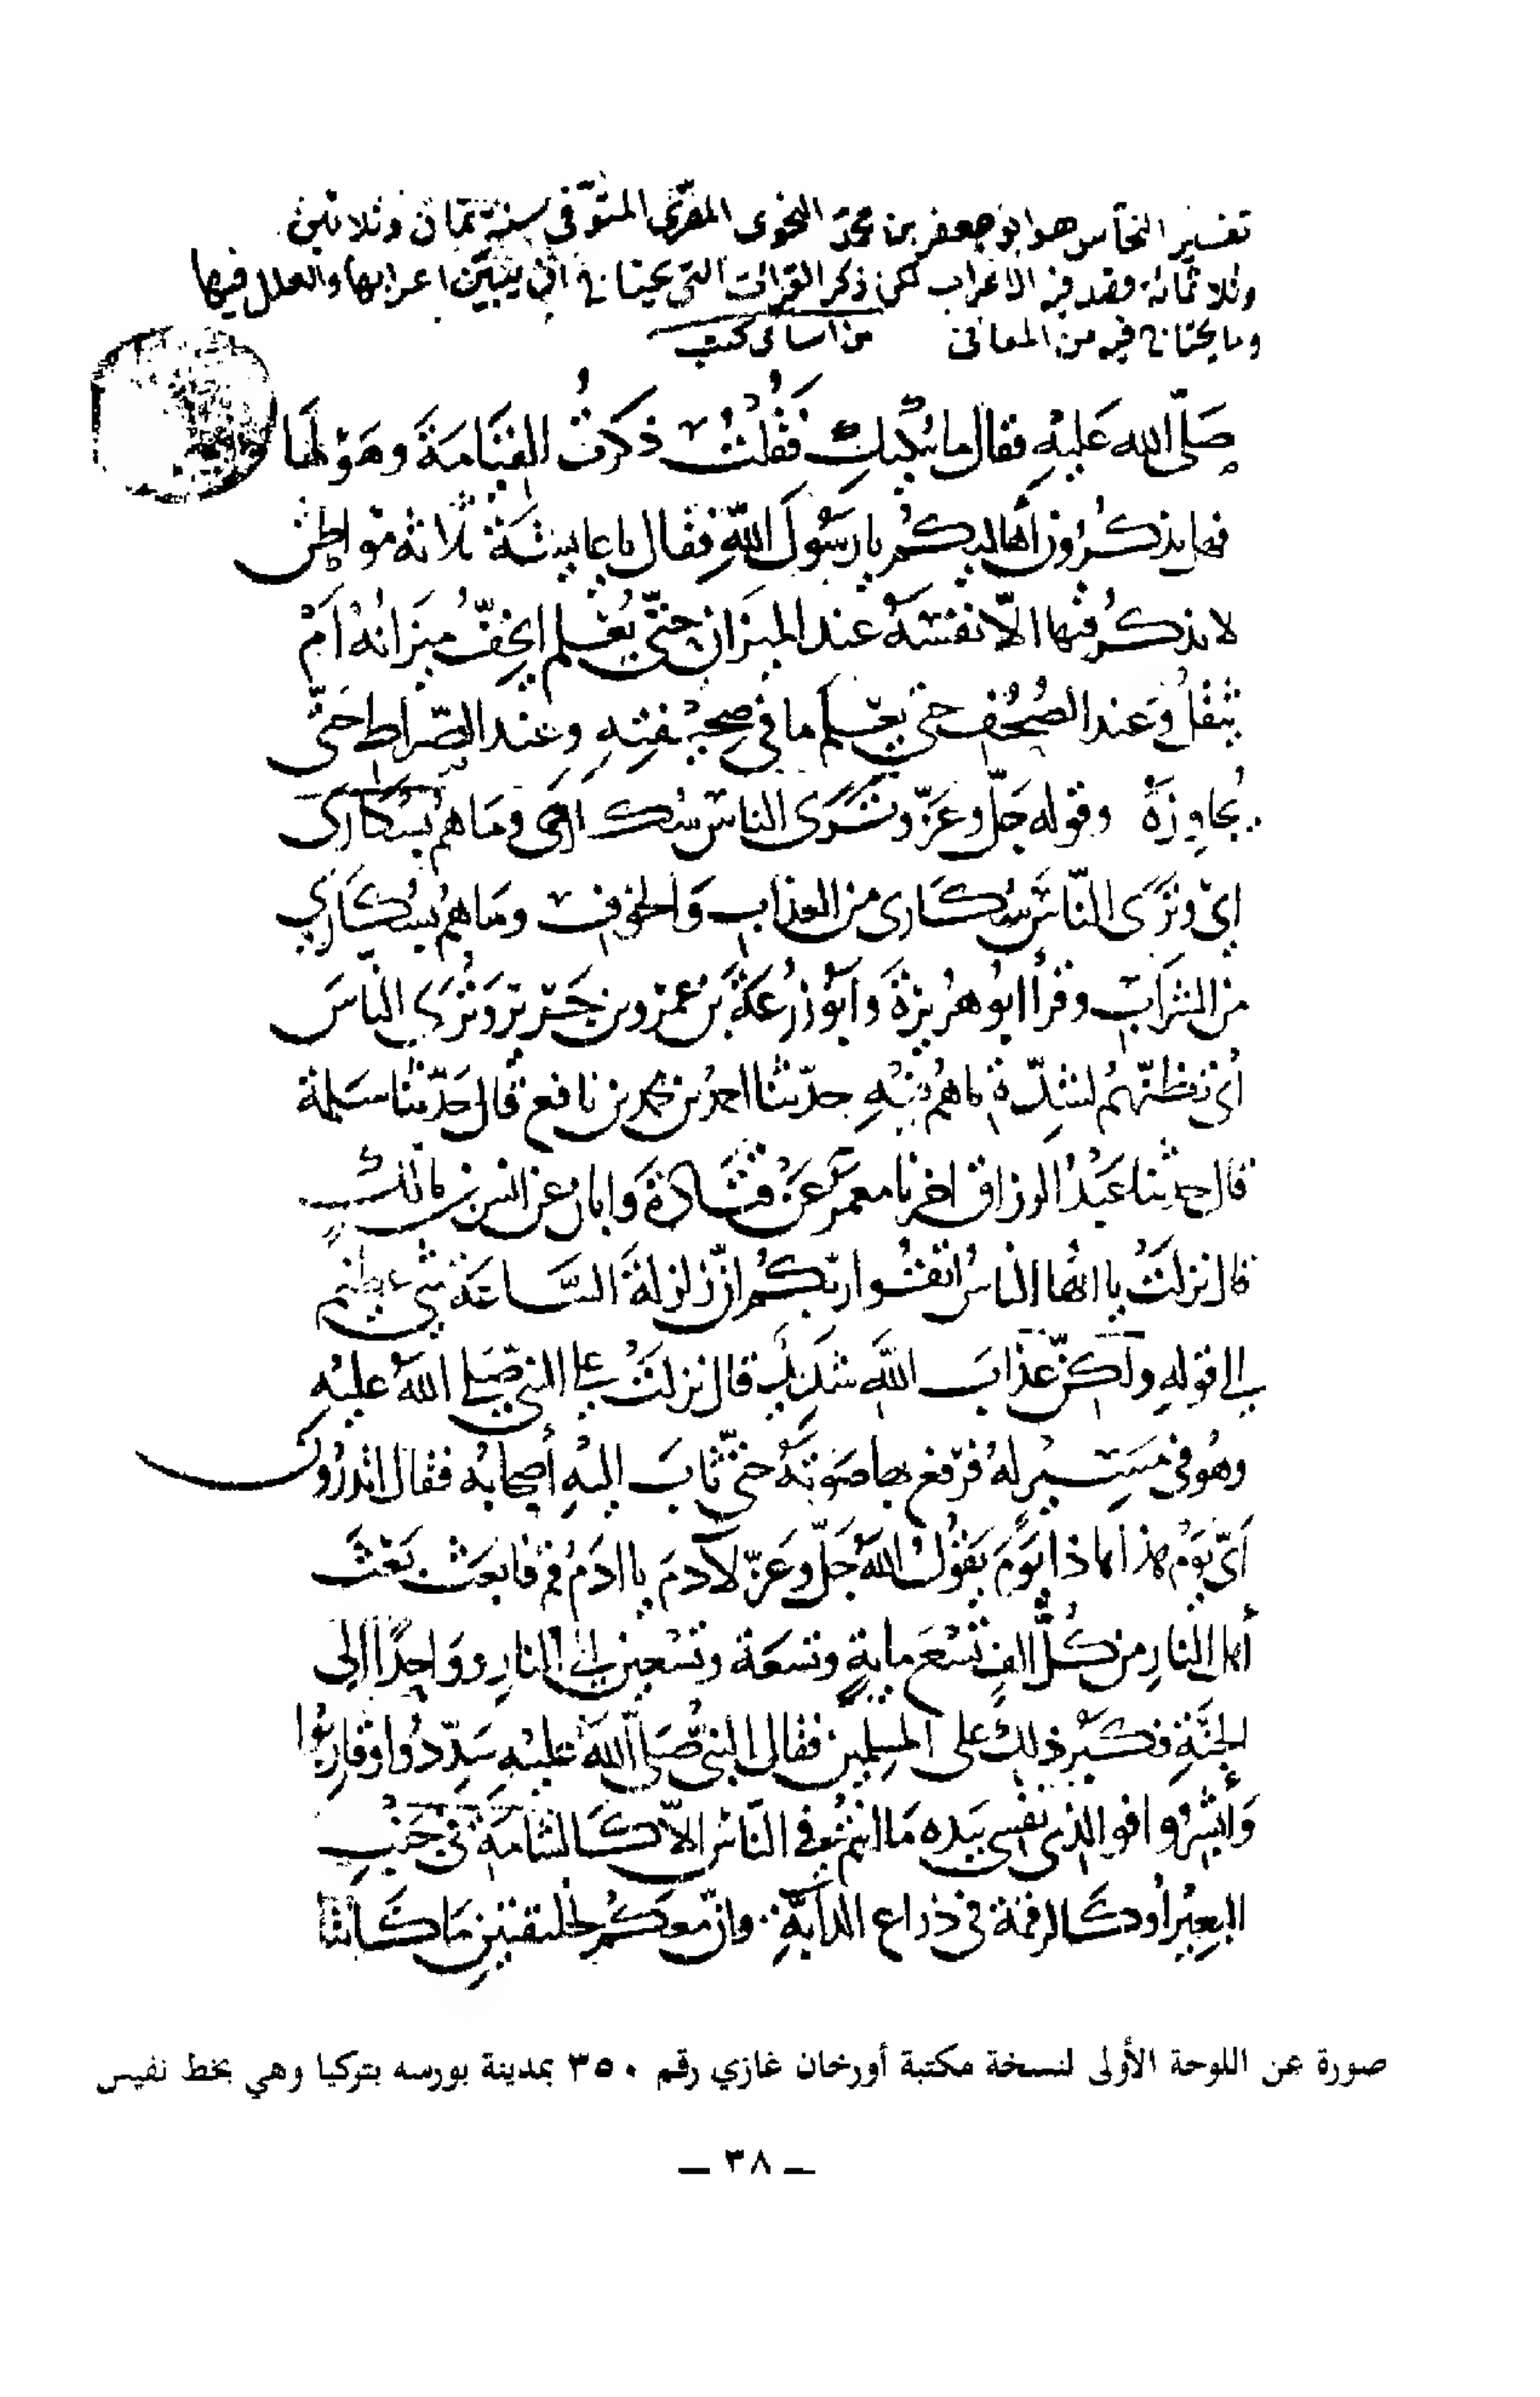 تفسير النحاس هو ابو جعفر بن محمد النحوى المقرى المتوفى سنة ثمان وثلاثين
وثلاثمائة وقصد فيه الاعراب لكن ذكر القراآت التى يحتاج الى ان يبين اعرابها والعلل فيها
وما يحتاج فيه من المعانى من اسامى كتب
صَلّى الله عَليْهِ فقال ما يُبكيكِ فَقُلتُ ذكَرتُ القِيَامَةَ وهَوْلهَا
فهل تذكُرُوْن أهاليكم يا رَسُولَ اللّهِ فقال يا عايشَة ثلاثة مَواطِن
لا يذكُر فيها الّا نفسَهُ عند الميزان حتّى يُعْلم ايخفّ ميزَانُهُ اَمْ
يثقلُ وعند الصُحُفِ حتى يَعلم ما فى صحِيْفتِهِ وعند الصّراط حتّى
يُجاوِزَهُ وقوله جَلّ وعَزّ وتَرَى الناسَ سُكارَى ومَا هُمْ بسُكَارَى
اىْ وتَرَى النّاسَ سُكَارى من العذاب وَالخوف ومَا هُمْ بسُكَارى
من الشَرَابِ وقرأ ابُو هُرَيرَةَ وَابُو زُرْعَةَ بن عمرو بن جَرير وَتُرَى الناسَ
أى تظنّهُمْ لشِدّةِ ما هُمْ فيْهِ حدّثنا احمدُ بن محمد بن نافع قال حَدّثنا سَلمة
قال حدثنا عَبْدُ الرزاق اخبرنا معمر عَنْ قتَادَةَ وَابان عن انس بن مالكٍ
قال نزلَتْ يا ايّها الناسُ اتقُوا ربّكُم انّ زلزلةَ السَّاعَة شىء عظيم
الى قولهِ ولكنّ عذابَ اللّهِ شدِيدٌ قال نزلَتْ على النبى صَلى اللهُ عليْهِ
وهُو فى مَسِيْرٍ لهُ فرَفع بها صَوتَهُ حتّى ثابَ اليْهِ أصحابُه فقال اتدْرُون
اَىّ يوْم هذا هذا يوْمَ يقُولُ اللهُ جَلّ وعَزّ لآدمَ يا ادَمُ قم فابعَث بَعْثَ
أهل النارِ من كُلِّ الفٍ تسْعَ مايةٍ وتسعَة وتسْعين الى النارِ وَوَاحِدًا الى
الجنّةِ فكبُر ذلك على المسلمين فقال النبىُّ صَلى اللّهُ عَليْهِ سَدّدُوا وقارِبُوا
وَأبشِرُوا فوالذى نفسى بيَده مَا انتُمْ فى النّاس الّا كَالشّامَةِ فى جَنْبِ
البعِيْرِ أوْ كَالرقمة فى ذراع الدابّةِ وانّ معكُمْ لخليقتيْنِ مَا كَانتا
صورة عن اللوحة الأولى لنسخة مكتبة أورخان غازي رقم ٣٥٠ بمدينة بورسه بتركيا وهي بخط نفيس
— ٣٨ —